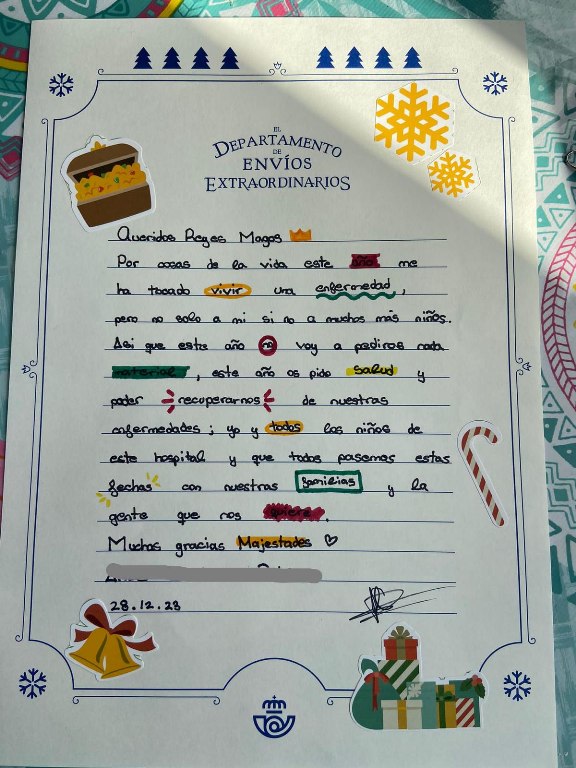 EL
DEPARTAMENTO
DE
ENVÍOS
EXTRAORDINARIOS
Queridos Reyes Magos
Por cosas de la vida este año me
ha tocado vivir una enfermedad,
pero no solo a mi si no a muchos más niños.
Asi que este año no voy a pediros nada
material, este año os pido salud y
poder recuperarnos de nuestras
enfermedades; yo y todos los niños de
este hospital y que todos pasemos estas
fechas con nuestras familias y la
gente que nos quiere.
Muchas gracias Majestades
28.12.23